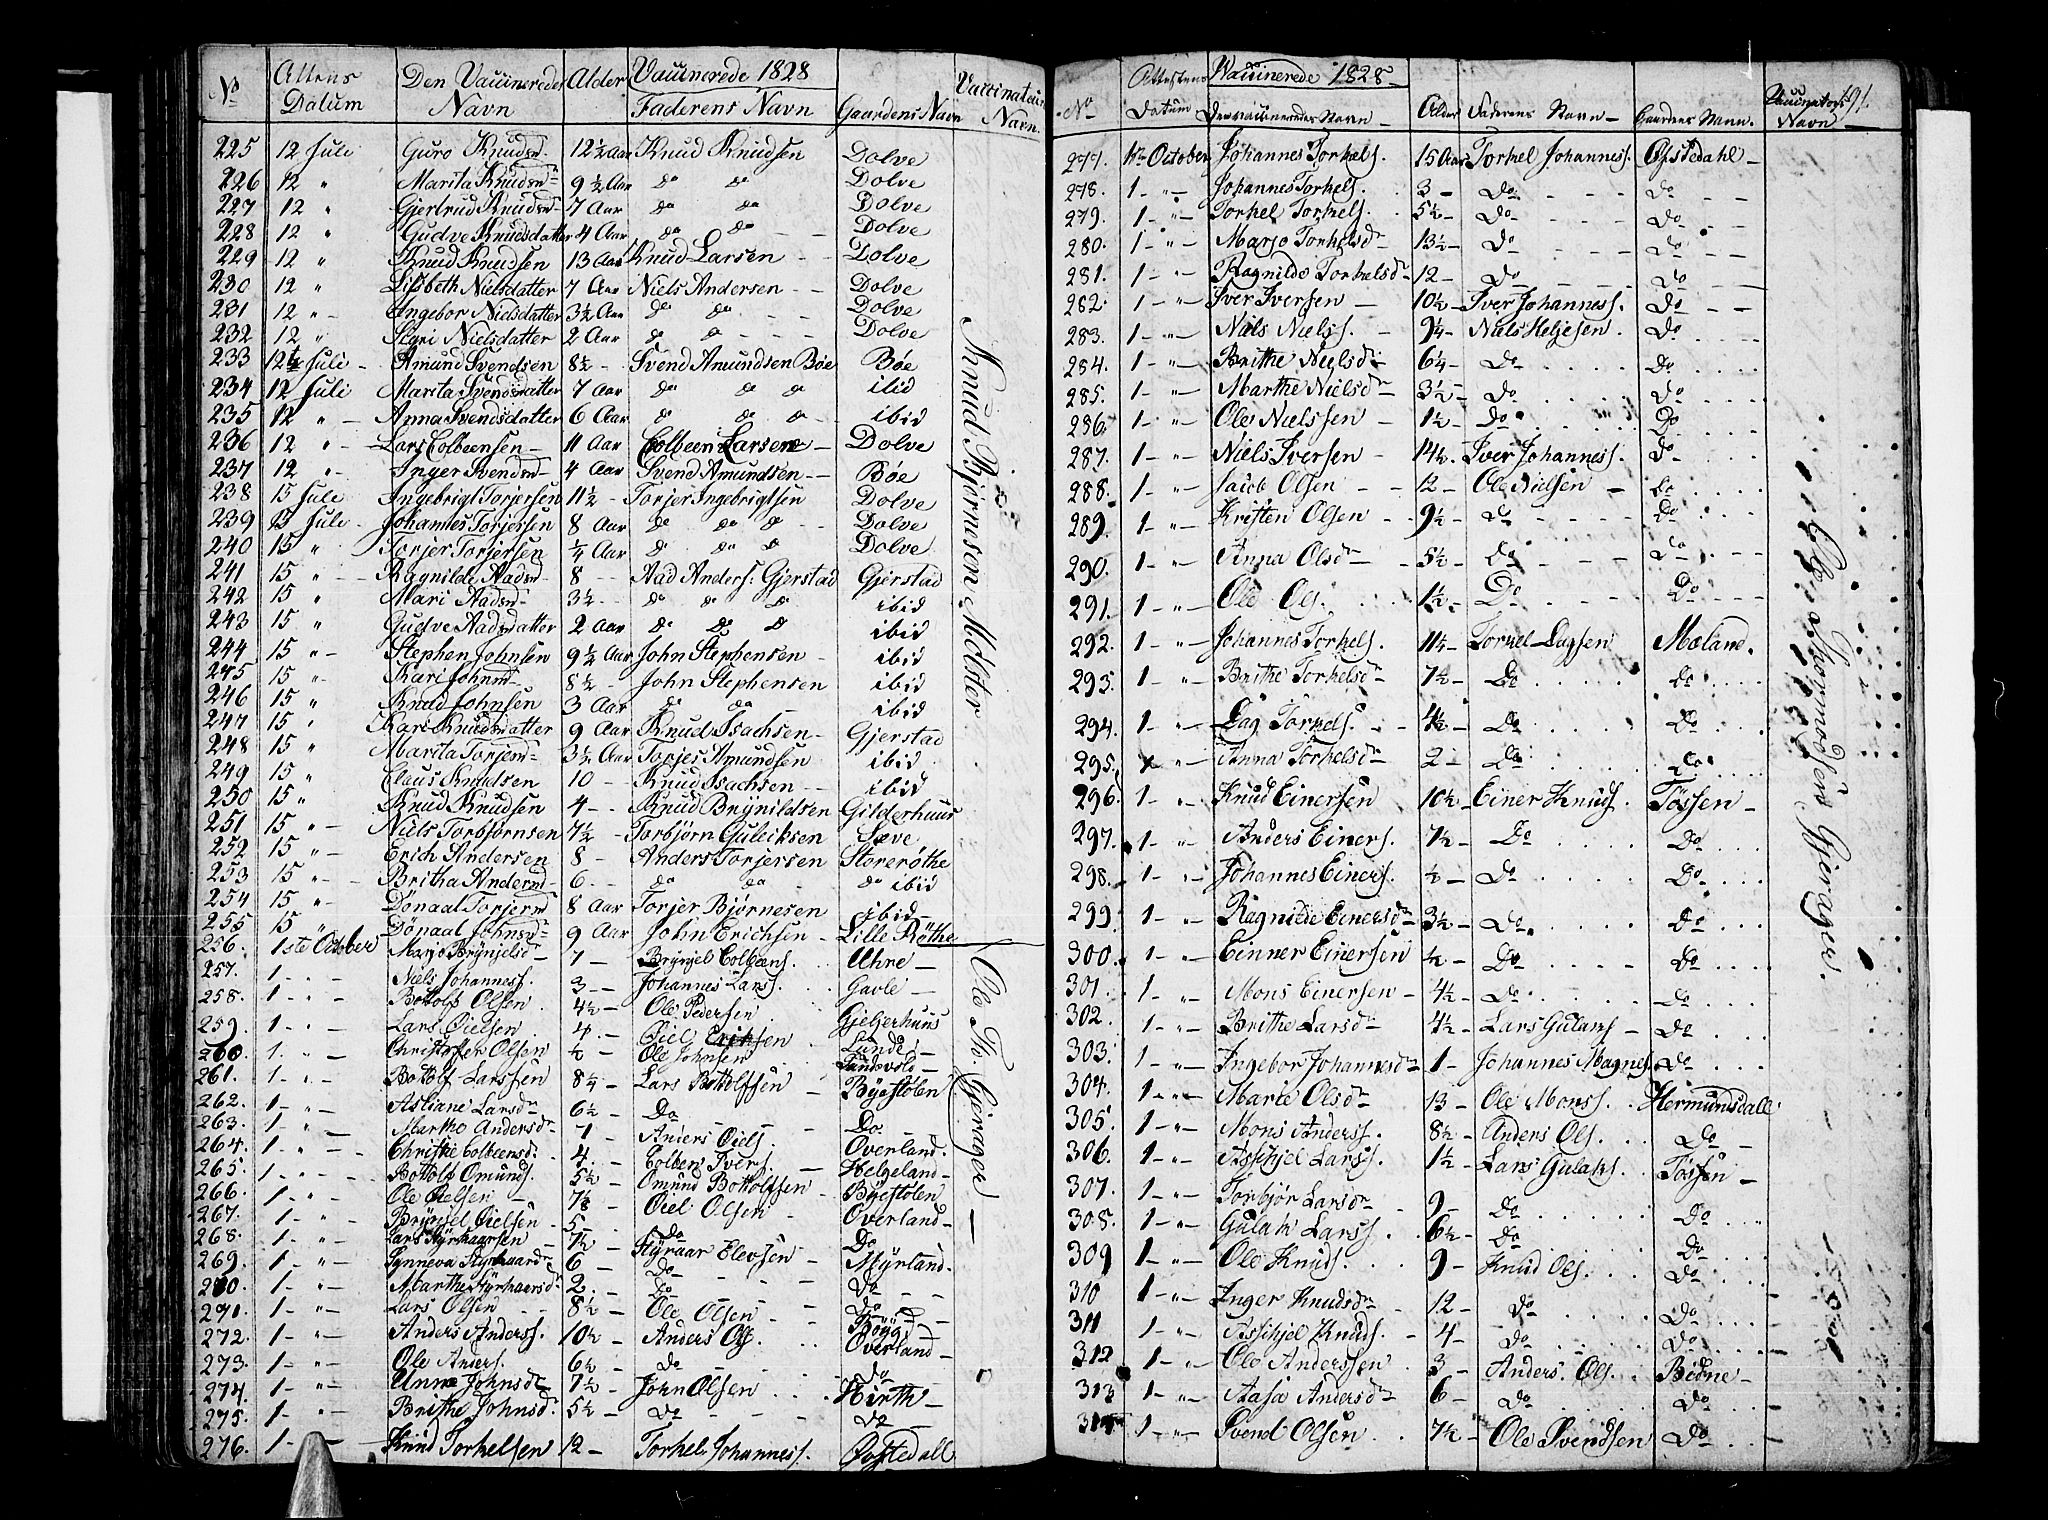 No Attens Datum Den Vaccineredes Navn Alder Vaccinerede 1828 Faderens Navn Gaardens Navn Vaccinateurs Navn
225 12 Juli Guro Knudsd 12½ Aar Knud Knudsen Dolve
226 12 " Marita Knudsd 9½ Aar do do Dolve
227 12 " Gjertrud Knudsd 7 Aar do do Dolve
228 12 " Gudve Knudsdatter 4 Aar do do - - Dolve
229 12 " Knud Knudsen 13 Aar Knud Larsen - - Dolve
230 12 " Lisbeth Nielsdatter 7 Aar Niels Andersen - - Dolve
231 12 " - Ingebor Nielsdatter 3½ Aar do do - - Dolve
232 12 " Sigri Nielsdatter 2 Aar do do - - - Dolve
233 12 Juli - Amund Svendsen 8½ - Svend Amundsen Bøe Bøe
234 12 Juli Marita Svendsdatter 7 Aar do do do ibid
235 12 " - Anna Svendsdatter 6 Aar do do do - ibid
236 12 " - Lars Colbeensen - 11 Aar Colbeen Larsen - Dolve
237 12 " - Inger Svendsd - 4 Aar Svend Amundsen - - Bøe
238 15 Juli Ingebrigt Torjersen 11½ - Torjer Ingebrigtsen Dolve
239 15 Juli - Johannes Torjersen 8 Aar do do do - - Dolve
240 15 " Torjer Torjersen ¼ Aar do do do Dolve
241 15 " - - Ragnilde Aadsd - 8 - - Aad Anders: Gjerstad Gjerstad
242 15 " Mari Aadsd - 3½ - - do do do ibid
243 15 " Gudve Aadsdatter 2 Aar do do do ibid
244 15 " - Stephen Johnsen 9½ Aar John Stephensen - ibid
245 15 " - Kari Johnsd - 8½ - John Stephensen ibid
246 15 " Knud Johnsen 3 Aar do do - ibid
247 15 " Kari Knudsdatter 9 Aar Knud Isachsen - Gjerstad
248 15 " Marita Torjersd - 3½ Aar Torjes Amundsen ibid
249 15 " Claus Knudsen 10 - Knud Isachsen - - ibid
250 15 " Knud Knudsen 4 - - Knud Brynildsen Gilderhuus
251 15 " - Niels Torbjørnsen 7½ - Torbjørn Gulleiksen Sæve
252 15 " - Erich Andersen 8 - Anders Torjersen Storerøthe
253 15 " - - Britha Andersd - 6. - do do do ibid
254 15 " - Dönaal Torjersd 8 Aar Torjer Bjørnesen ibid -
255 15 " - Dönaal Johnsd - 9 Aar John Erichsen - Lille Røthe
Knud Bjørneson Mølster
256. 1ste October Marjo Brynjelsd - 7 - Brynjel Colbeens. Uhre -
257. 1 - " - Niels Johanness. 3 - Johannes Larss. . . Gavle -
258. 1 - " - Bottolf Olsen 4½ - Ole Pedersen Gjeljerhuus
259. 1 - " - Lars Oielsen 4. - Oiel Eriksen . Lunde -
260. 1. " - Christoffer Olsen ½ - Ole Johnsen Landsvold -
261. 1 - " - Bottolf Larssen 8¼ - Lars Bottolfsen Byestølen
262. 1 - " - Astiane Larsd 6½ - Do - Do -
263. 1 - " - Martho Andersd - 7 - Anders Oiels. Overland.
264. 1 - " - Christie Colbeensd. 4. - Colben Ivers. - Helgeland -
265. 1 - " - Bottolf Omunds. 5½ - Omund Bottolfsen - Byestølen
266. 1 - " - Ole Oielsen - 7⅛ - Oiel Olsen - Overland -
267. 1 - " - Brynjel Oielsen - 5 - Do Do
268. 1 - " - Lars Styrkaarsen 7½ - Styraar Elevsen - Myrland.
269. 1 - " - Synneva Styrkaarsd 6 - Do - - - Do - -
280. 1 - " - Marthe Styrkaarsd 2. - Do - - - Do
291. 1 - " - Lars Olsen - - 8½ - Ole Olsen - Bøygd -
272. 1 - " - Anders Anderss. 10½ - Anders Ols. . . Overland -
273. 1 - " - Ole Anders. 6½ - do - - - do -
274. 1 - " - Unna Johnsd 7½ - John Olsen . . . Hirth -
275. 1 - " - Brithe Johnsd. 5½ - do - - - do -
276. 1 - " - Knud Torkelsen 12 - Torkel Johanness. Øvstedall
Ole Th. Gjerager -
191.
No Attestens Datum Vaccinerede 1828 - Den vaccineredes Navn - Alder Faderens Navn - Gaardens Navn. Vaccinators Navn -
277. 1te October Johannes Torkels. 15 Aar Torkel Johanness. Øfstedahl -
278. 1 - " - Johannes Torkels. 3 - Do - - - do - -
279. 1 - " - Torkel Torkels. . 5½ - Do - - - Do - -
280. 1 - " - Marjo Torkelsd 13½ - Do - - - do - -
281. 1 - " - Ragnilde Torkelsd - 12 - Do - - - Do - -
282. 1 - " Iver Iversen - 10½ - Iver Johanness. Do - -
283. 1 - " - Niels Nielss. - 9¼ - Niels Heljesen . Do
284. 1 - " - Brithe Nielsd - 6¼ - Do . . . . Do . . . .
285. 1 - " - Marthe Nielsd 3½ - Do . . . . Do . . . .
286. 1 - " - Ole Nielssen 1½ - Do . . . . Do . . . .
287. 1 - " - Niels Iversen - 14½. Iver Johanness. Do - . . .
288. 1 - " - Jacob Olsen - - 12 - Ole Nielsen - Do . . . .
289. 1 - " - Kristen Olsen - - 9½ - do - - - Do . . . .
290. 1 - " - Anna Olsd 5½ - Do . - - Do - - - -
291. 1 - " - Ole Ols. . . . 1½ - Do . . - - Do - - - -
292. 1 - " - Johannes Torkels. 11½ - Torkel Dagsen Mæland.
293. 1 - " Brithe Torkelsd 7½ - Do . . . . do . . . .
294. 1 - " Dag Torkels. - 4½ - Do . . . . Do . . . .
295. 1 - " Anna Torkelsd 2 - Do . . . . Do . . . .
296. 1 - " Knud Einersen 10½ - Einer Knuds. Tössen -
297. 1 - " - Anders Einers. 7½ - Do . . . . Do . . . .
298. 1 - " - Johannes Einers. ½ - Do . . . . Do - . . .
299. 1 - " Ragnilde Einersd 3½ - Do . . . . Do . . . .
300. 1 - " Einner Einersen ½ - Do . . . . Do . . . .
301 1 - " Mons Einersen - 4½ - Do . . . . Do . . . .
302. 1 - " - Brithe Larsd 4½ - Lars Gulaks - Do . . . .
303. 1 - " Ingebor Johannesd 1 - Johannes Magnes. Do . . . .
304. 1 - " - Marte Olsd 13 - Ole Monss. Hermundsdall
305. 1 - " - Mons Anderss. 8½ - Anders Ols. . . Do -
306. 1 - " - Assikjel Larss. 1½ - Lars Gulaks . Tössen -
307. 1 - " Torbjør Larsd 9 - Do . . . . Do . . .
308. 1 - " - Gulak Larss. . . 6½ - Do . . . . Do . . . .
309 1 - " Ole Knuds. . . . 9 - Knud Ols. . . . Do . . . .
310 1 - " - Inger Knudsd 12 - Do . . . . Do . . . .
311 1 - " - Assikjel Knuds. . 4 - Do . . . . Do . . . .
312 1 - " - Ole Anderssen . 3 - Anders . Ols. . Bødne -
313 1 - " Aasa Andersd 6 - Do . . . . Do . . . .
314 1 - " - Svend Olsen . . 7½ - Ole Svendsen Do . . . .
Ole Thormodsen Gjerager